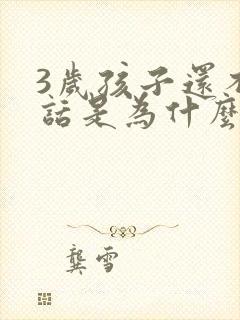 3歲孩子還不
話是為什麼
龔雪